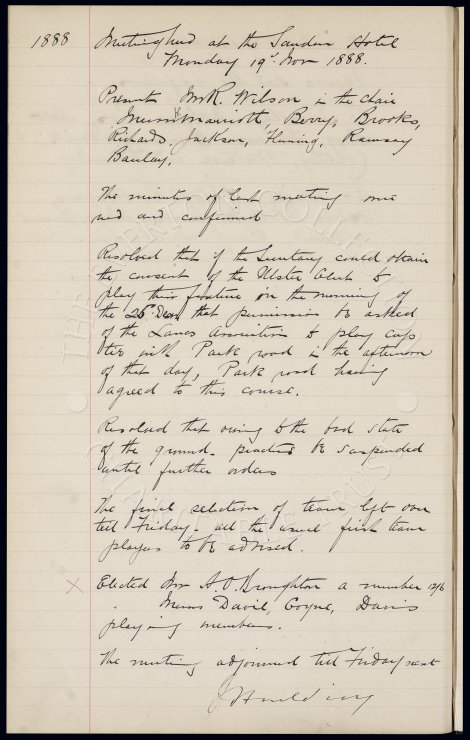 1888
Meeting held at the Sandon Hotel
Monday 19th Nov 1888.
Present Mr R. Wilson in the chair
Messrs Marriott, Berry, Brooks,
Richards, Jackson, Fleming, Ramsay
Barclay.
The minutes of last meeting were
read and confirmed
Resolved that if the Secretary could obtain
the consent of the Ulster Club to
play their fixture on the morning of
the 25 Decr that permission be asked
of the Lancs Association to play cup
tie with Park road in the afternoon
of that day, Park road having
agreed to this course.
Resolved that owing to the bad state
of the ground practice be suspended
until further orders
The final selection of team left over
till Friday - all the usual first team
players to be advised.
Elected Mr A. O. Broughton a member 12/6
Messrs David, Coyne, Davis
playing members.
The meeting adjourned till Friday next
J Houlding
THE EVERTON COLLECTION